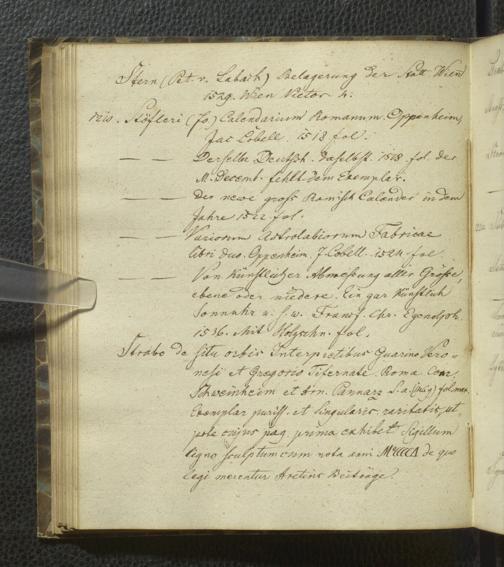 Stern (Pet. v. Labach) Belagerung der Statt Wien
1529. Wien Vietor 4.
Stöfleri (Jo) Calendarium Romanum Oppenheim,
Jac Löbell. 1518 fol.
— — Derselbe Deutsch. daselbst. 1518. fol. der
M. Decemb. fehlt dem Exemplar.
— — Der neue gross Romisch Calander in dem
Jahre 1522 fol.
— — Variorum Astrolabiorum Fabricae
libri duo. Oppenheim. J. Löbell. 1524. fol
— — Von künstlicher Abmessung aller Grösse,
ebene oder niedere. Ein gar künstlich
Sonnuhr u. s. w. Franf. Chr. Egenolph
1536. Mit Holzschn. fol.
Strabo de Situ orbis Interpretibus Guarino Vero-
nesi et Gregorio Tifernate. Roma Con.
Schweinheim et Arn. Pannarz S. a. fol. max.
Exemplar puriss. et singularis raritatis, ut
pote cujus pag. prima exhibet Sigillum
ligno sculptum cum nota anni de quo
legi merentur Aretins Beiträge.